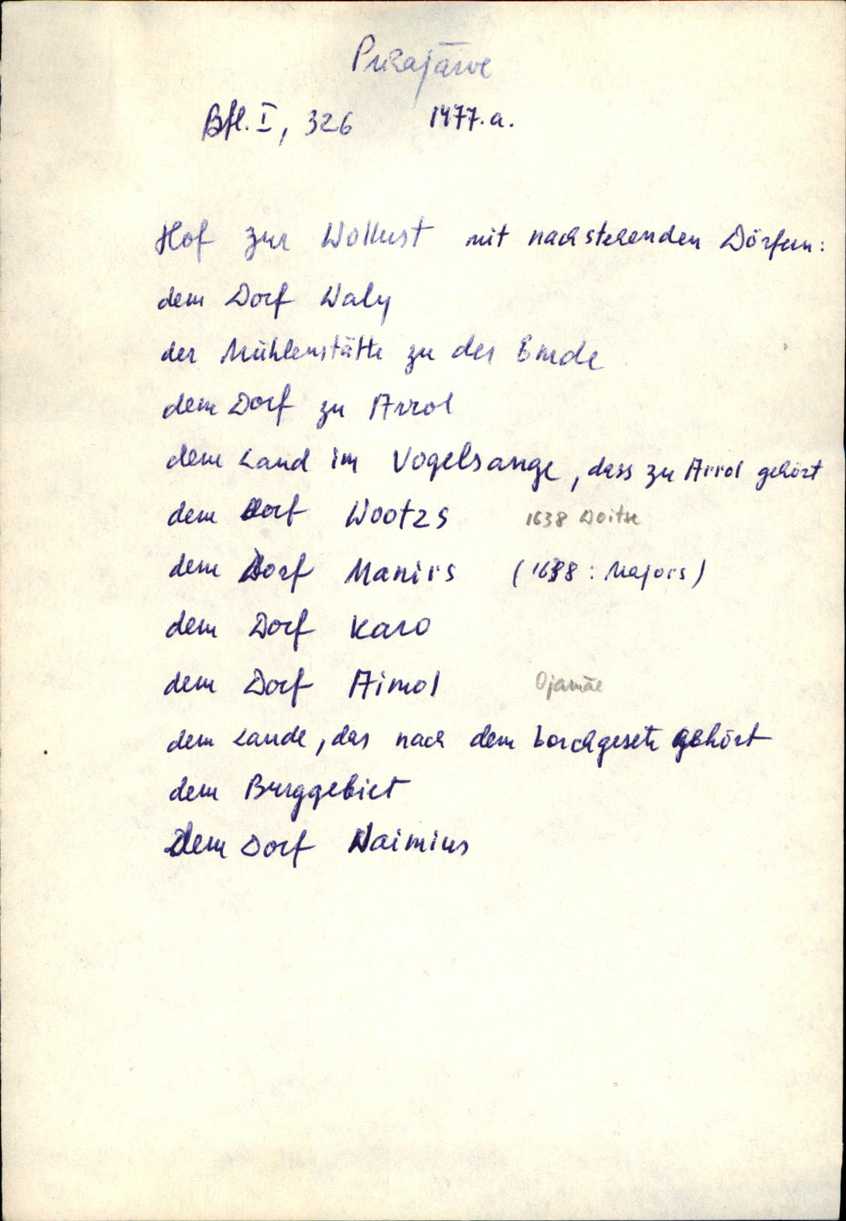 Pühajärve
Bfl. I, 326 1477.a.
Hof zur Wollust mit nachstehenden Dörfern:
dem Dorf Waly
der Mühlenstätte zu der Emde
dem Dorf zu Arrol
dem Land im Vogelsange, dass zu Arrol gehört
dem Dorf Wootzs 1638 Woitze
dem Dorf Manirs (1638: Majors)
dem Dorf Karo
dem Dorf Aimol Ojamäe
dem Lande, das nach dem gehört
dem Burggebiet
Dem Dorf Waimius